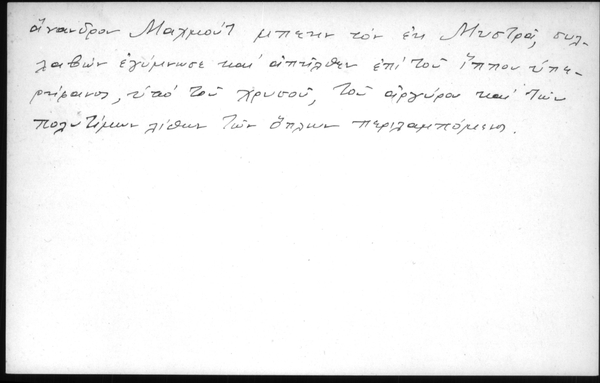 ἄνανδρον Μαχμούτ μπέην τὸν ἐκ Μυστρᾶ, συλ-
λαβὼν ἐγύμνωσε καὶ ἀπῆλθεν ἐπὶ τοῦ ἵππου ὑπε-
ρήφανος, ὑπὸ τοῦ χρυσοῦ, τοῦ ἀργύρου καὶ τῶν
πολυτίμων λίθων τῶν ὅπλων περιλαμπόμενος.